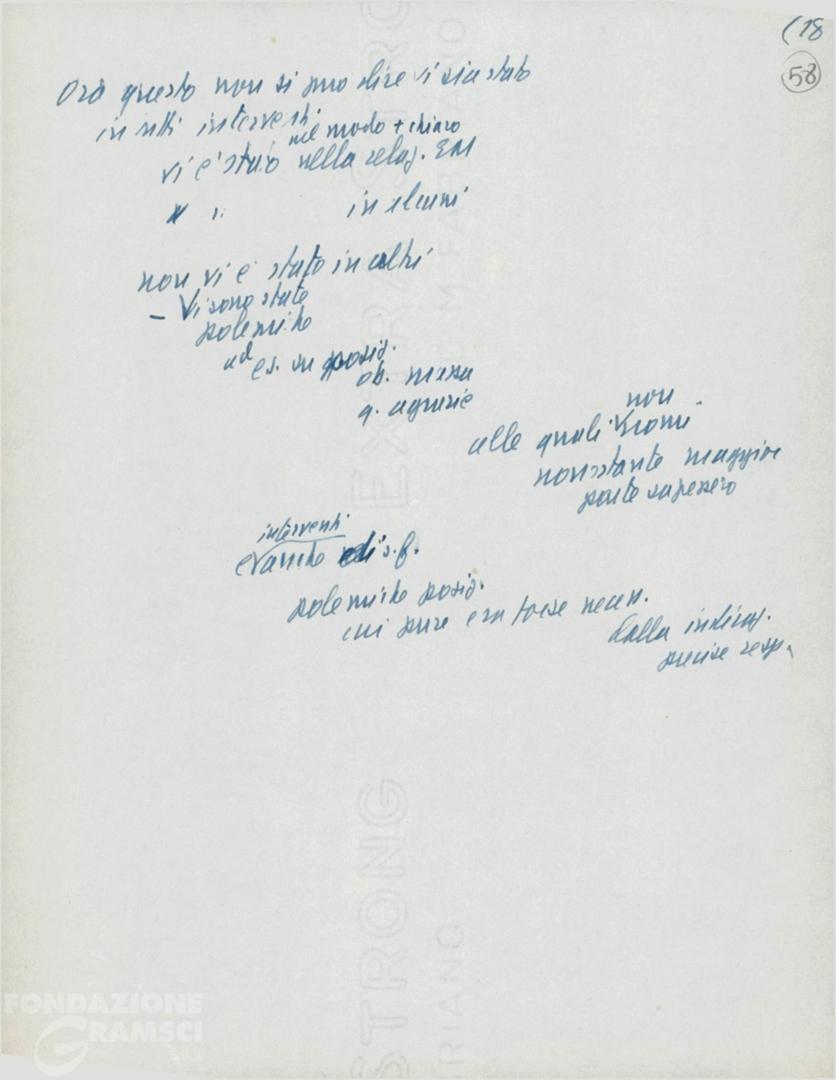 (18
58
Ora questo non si può dire vi sia stato
in tutti interventi
nel modo + chiaro
vi è stato nella relaz. EM
" " in alcuni
non vi è stato in altri
– Vi sono state
polemiche
ad es. su posiz.
ob. massa
q. agrarie
non
alle quali
nonostante maggior
parte sapessero
interventi
e anche di s. f.
polemiche posiz.
cui pure era forse necess.
dalla indicaz.
precise resp.
EXTRA STRONG
FABRIANO
STRONG
FONDAZIONE
GRAMSCI